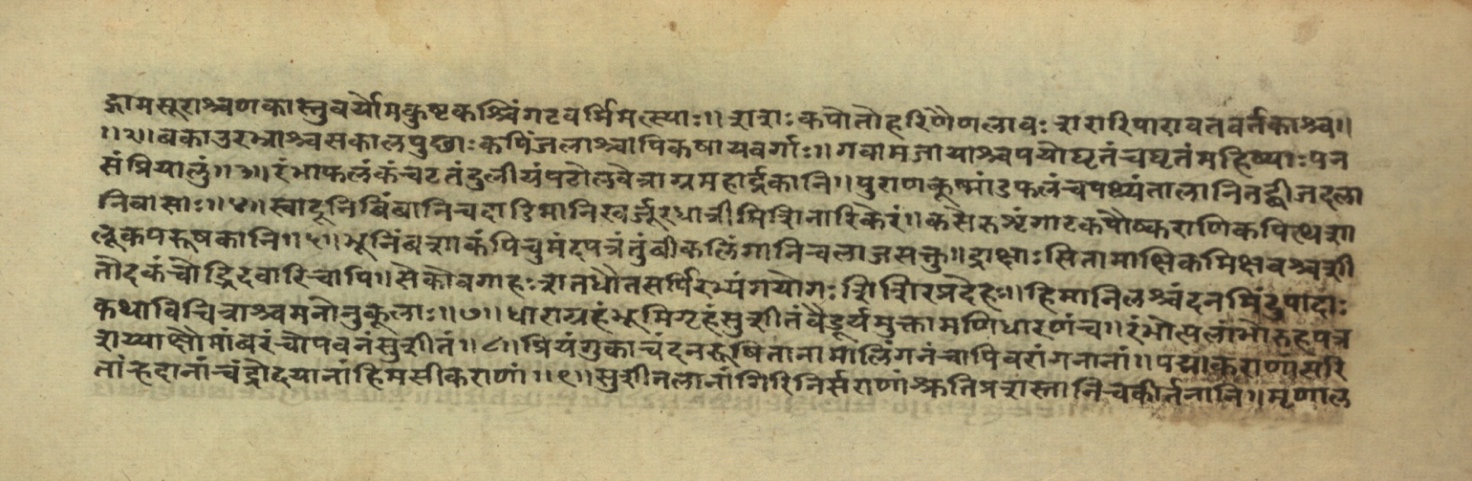 द्गामसूराश्चणकास्तुवर्योमकुष्टकश्चिंगटवर्मिमत्स्याः॥ शशः कपोतोहरिणैणलावः शरारिपारावतवर्तकाश्च॥
॥३॥ बकाउरभ्राश्चसकालपुछाः कपिंजलाश्चापिकषायवर्गाः॥ गवामजायाश्चपयोघृतंचघृतंमहिष्याः पन
संप्रियालुं॥ रंभाफलंकंचटतंदुलीयंपटोलवेत्राग्रमहार्द्रकानि॥ पुराणकूष्मांडफलंचपथ्यंतालानितद्बीजदला
निवासाः॥४॥ स्वादूनिबिंबानिचदाडिमानिखर्जूरधात्रीमिशिनारिकेरं॥ कसेरुशृंगाटकपौष्कराणिकपित्थशा
लूकपरूषकानि॥५॥ भूनिंबशाकंपिचुमंदपत्रंतुंबीकलिंगानिचलाजसक्तु॥ द्राक्षाः सितामाक्षिकमिक्षवश्चशी
तोदकंचौद्भिदवारिचापि॥ सेकोवगाहः शतधौतसर्पिरभ्यंगयोगः शिशिरप्रदेहः॥ हिमानिलश्चंदनमिंदुपादाः
कथाविचित्राश्चमनोनुकूलाः॥७॥ धाराग्रहंभूमिगृहंसुशीतंवैडूर्यमुक्तामणिधारणंच॥ रंभोत्पलांभोरुहपत्र
शय्याक्षौमांबरंचोपवनंसुशीतं॥८॥ प्रियंगुकाचंदनरूषितानामालिंगनंचापिवरांगनानां॥ पद्माकराणांसरि
तांह्रदानांचंद्रोदयानांहिमसीकराणां॥९॥ सुशीतलानांगिरिनिर्सराणांश्रुतिप्रशस्तानिचकीर्तनानि॥ मृणाल